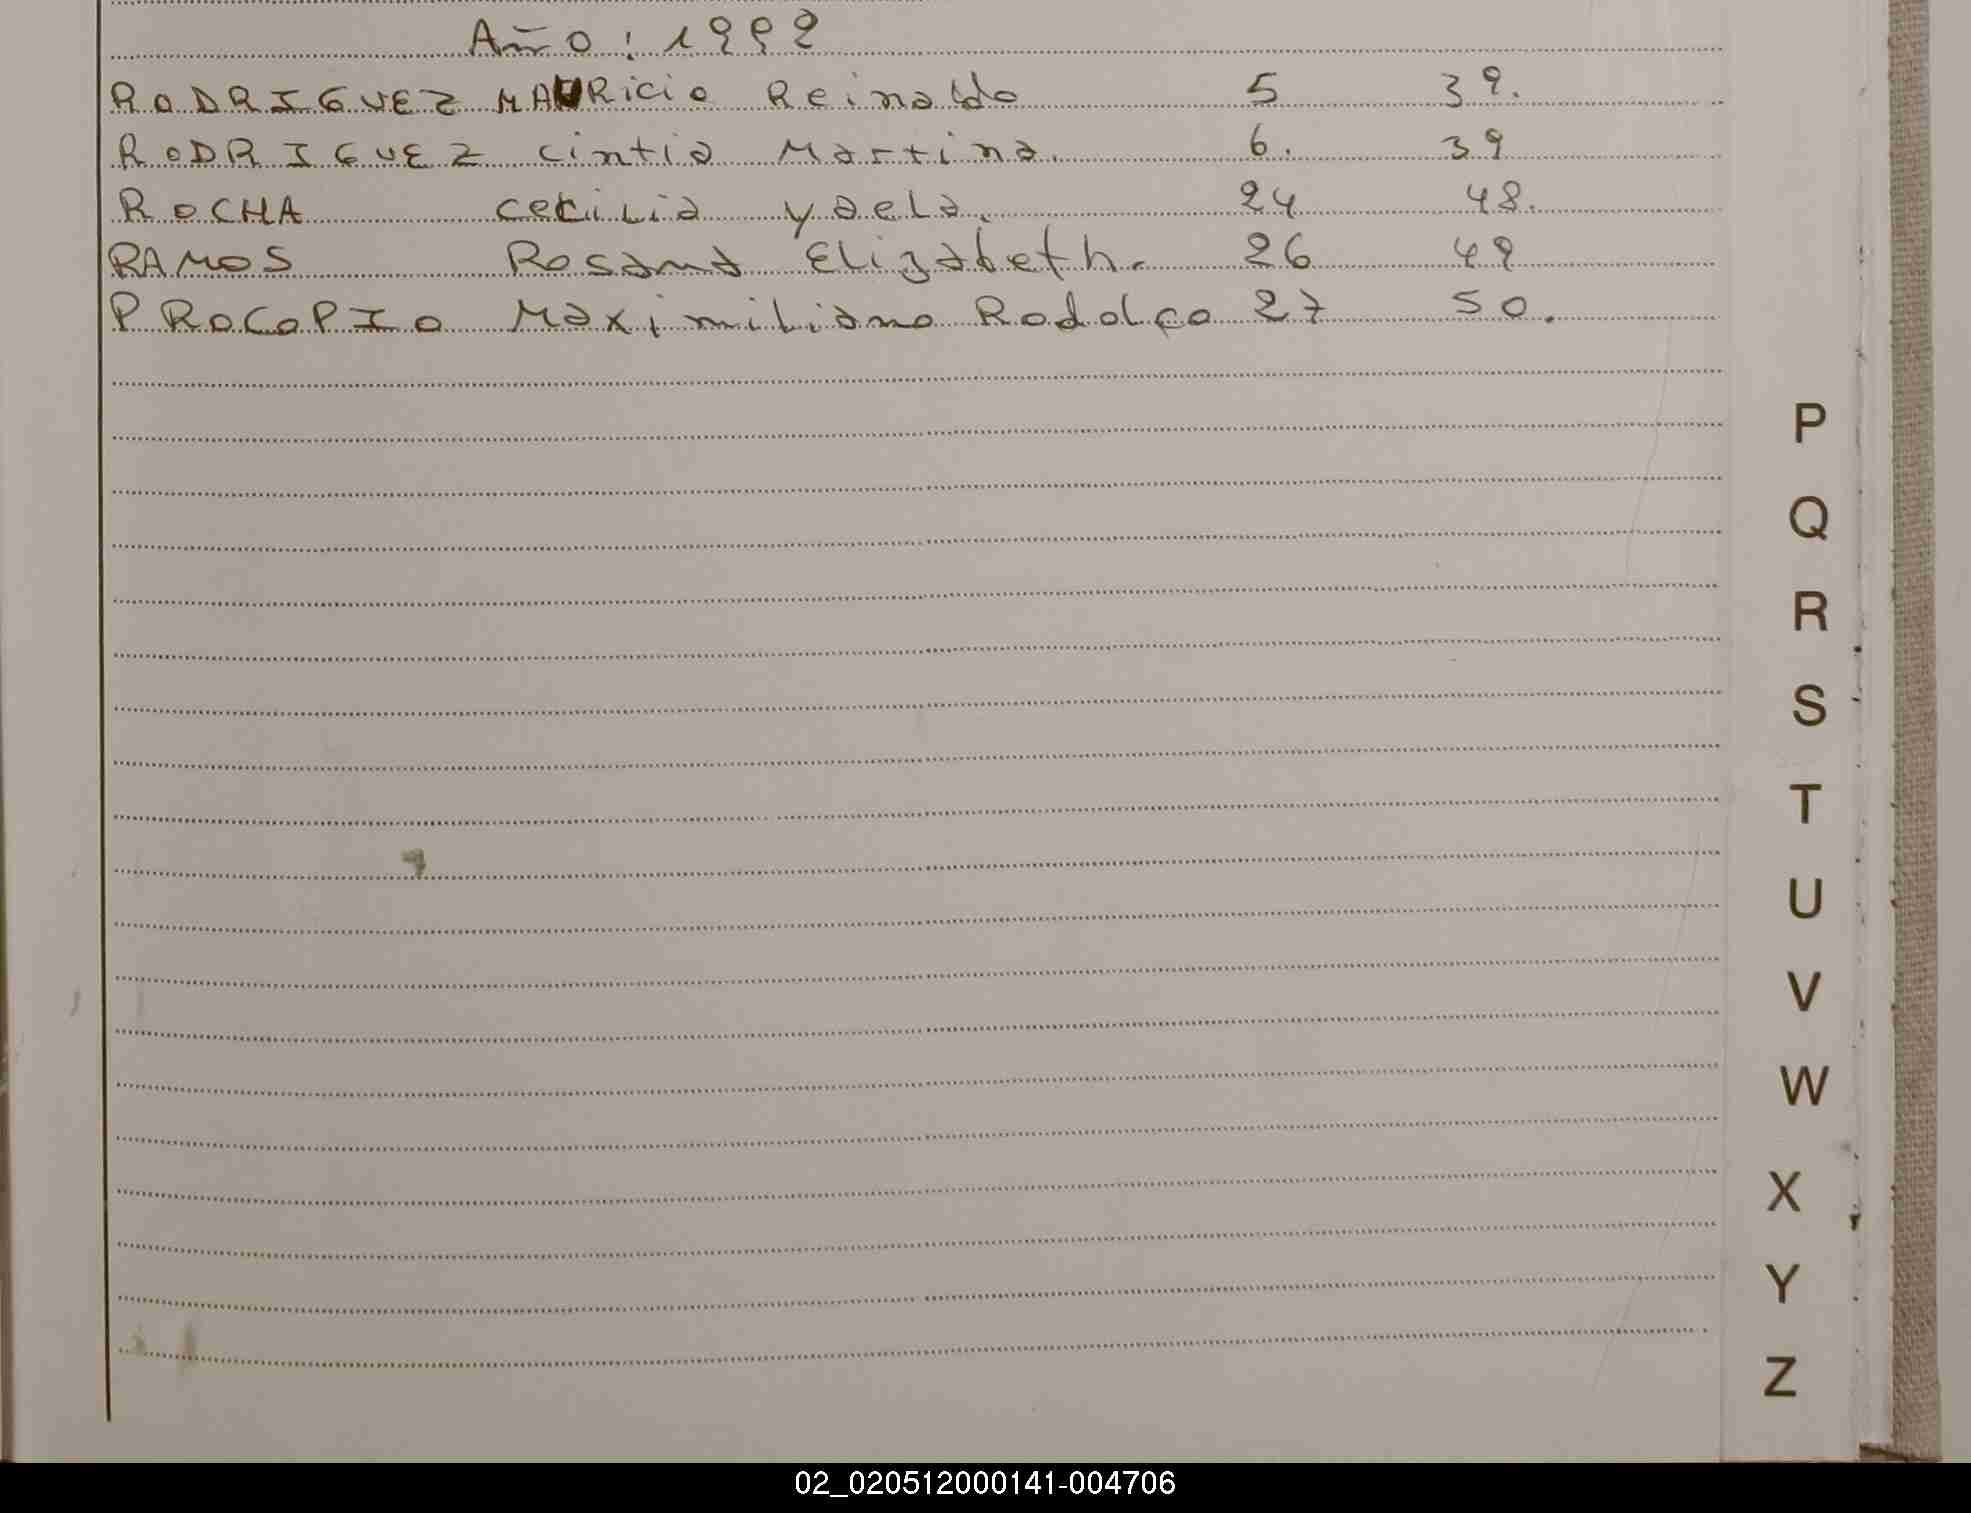 Año: 1992
RODRIGUEZ MAURicio Reinaldo 5 39.
RODRIGUEZ cintia Martina. 6. 39
ROCHA cecilia yaela. 24 48.
RAMOS Rosana Elizabeth. 26 49
PROCOPIO Maximiliano Rodolfo 27 50.
P
Q
R
S
T
U
V
W
X
Y
Z
02_020512000141-004706